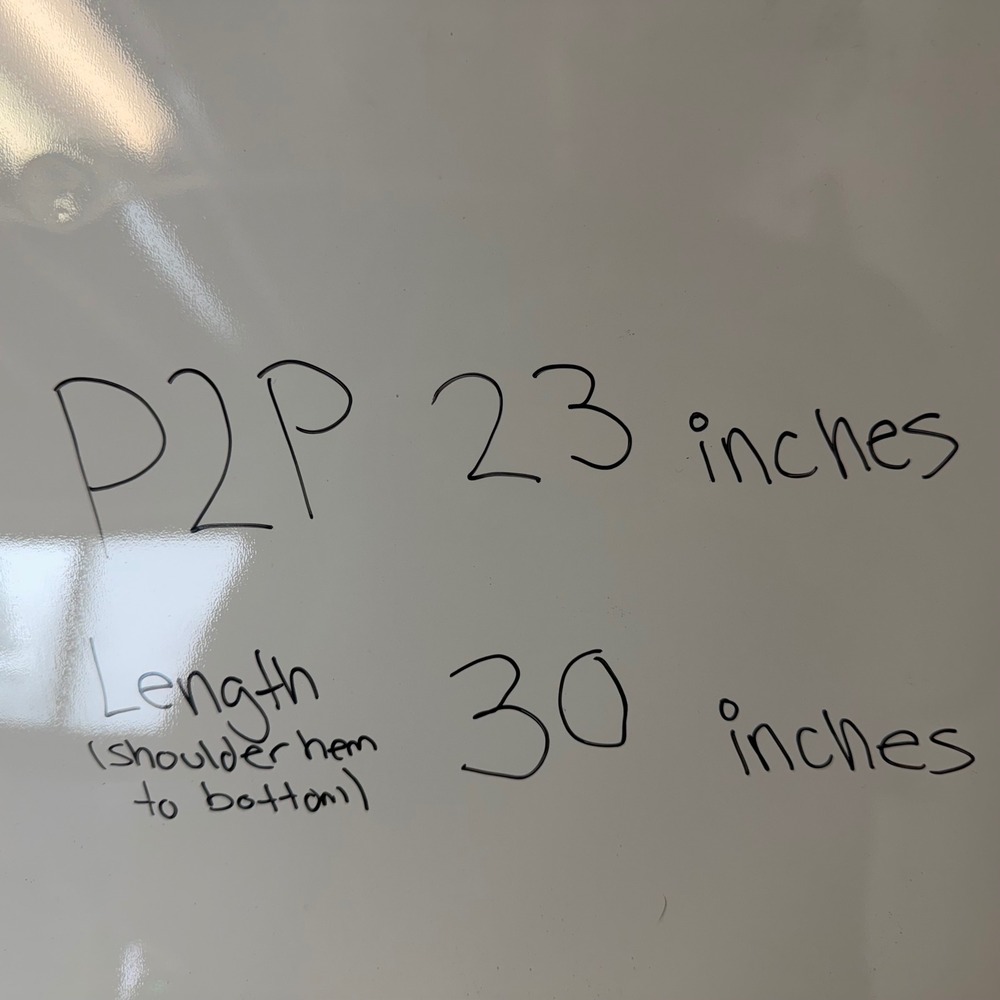 P2P 23 inches
Length 30 inches
(shoulder hem
to bottom)